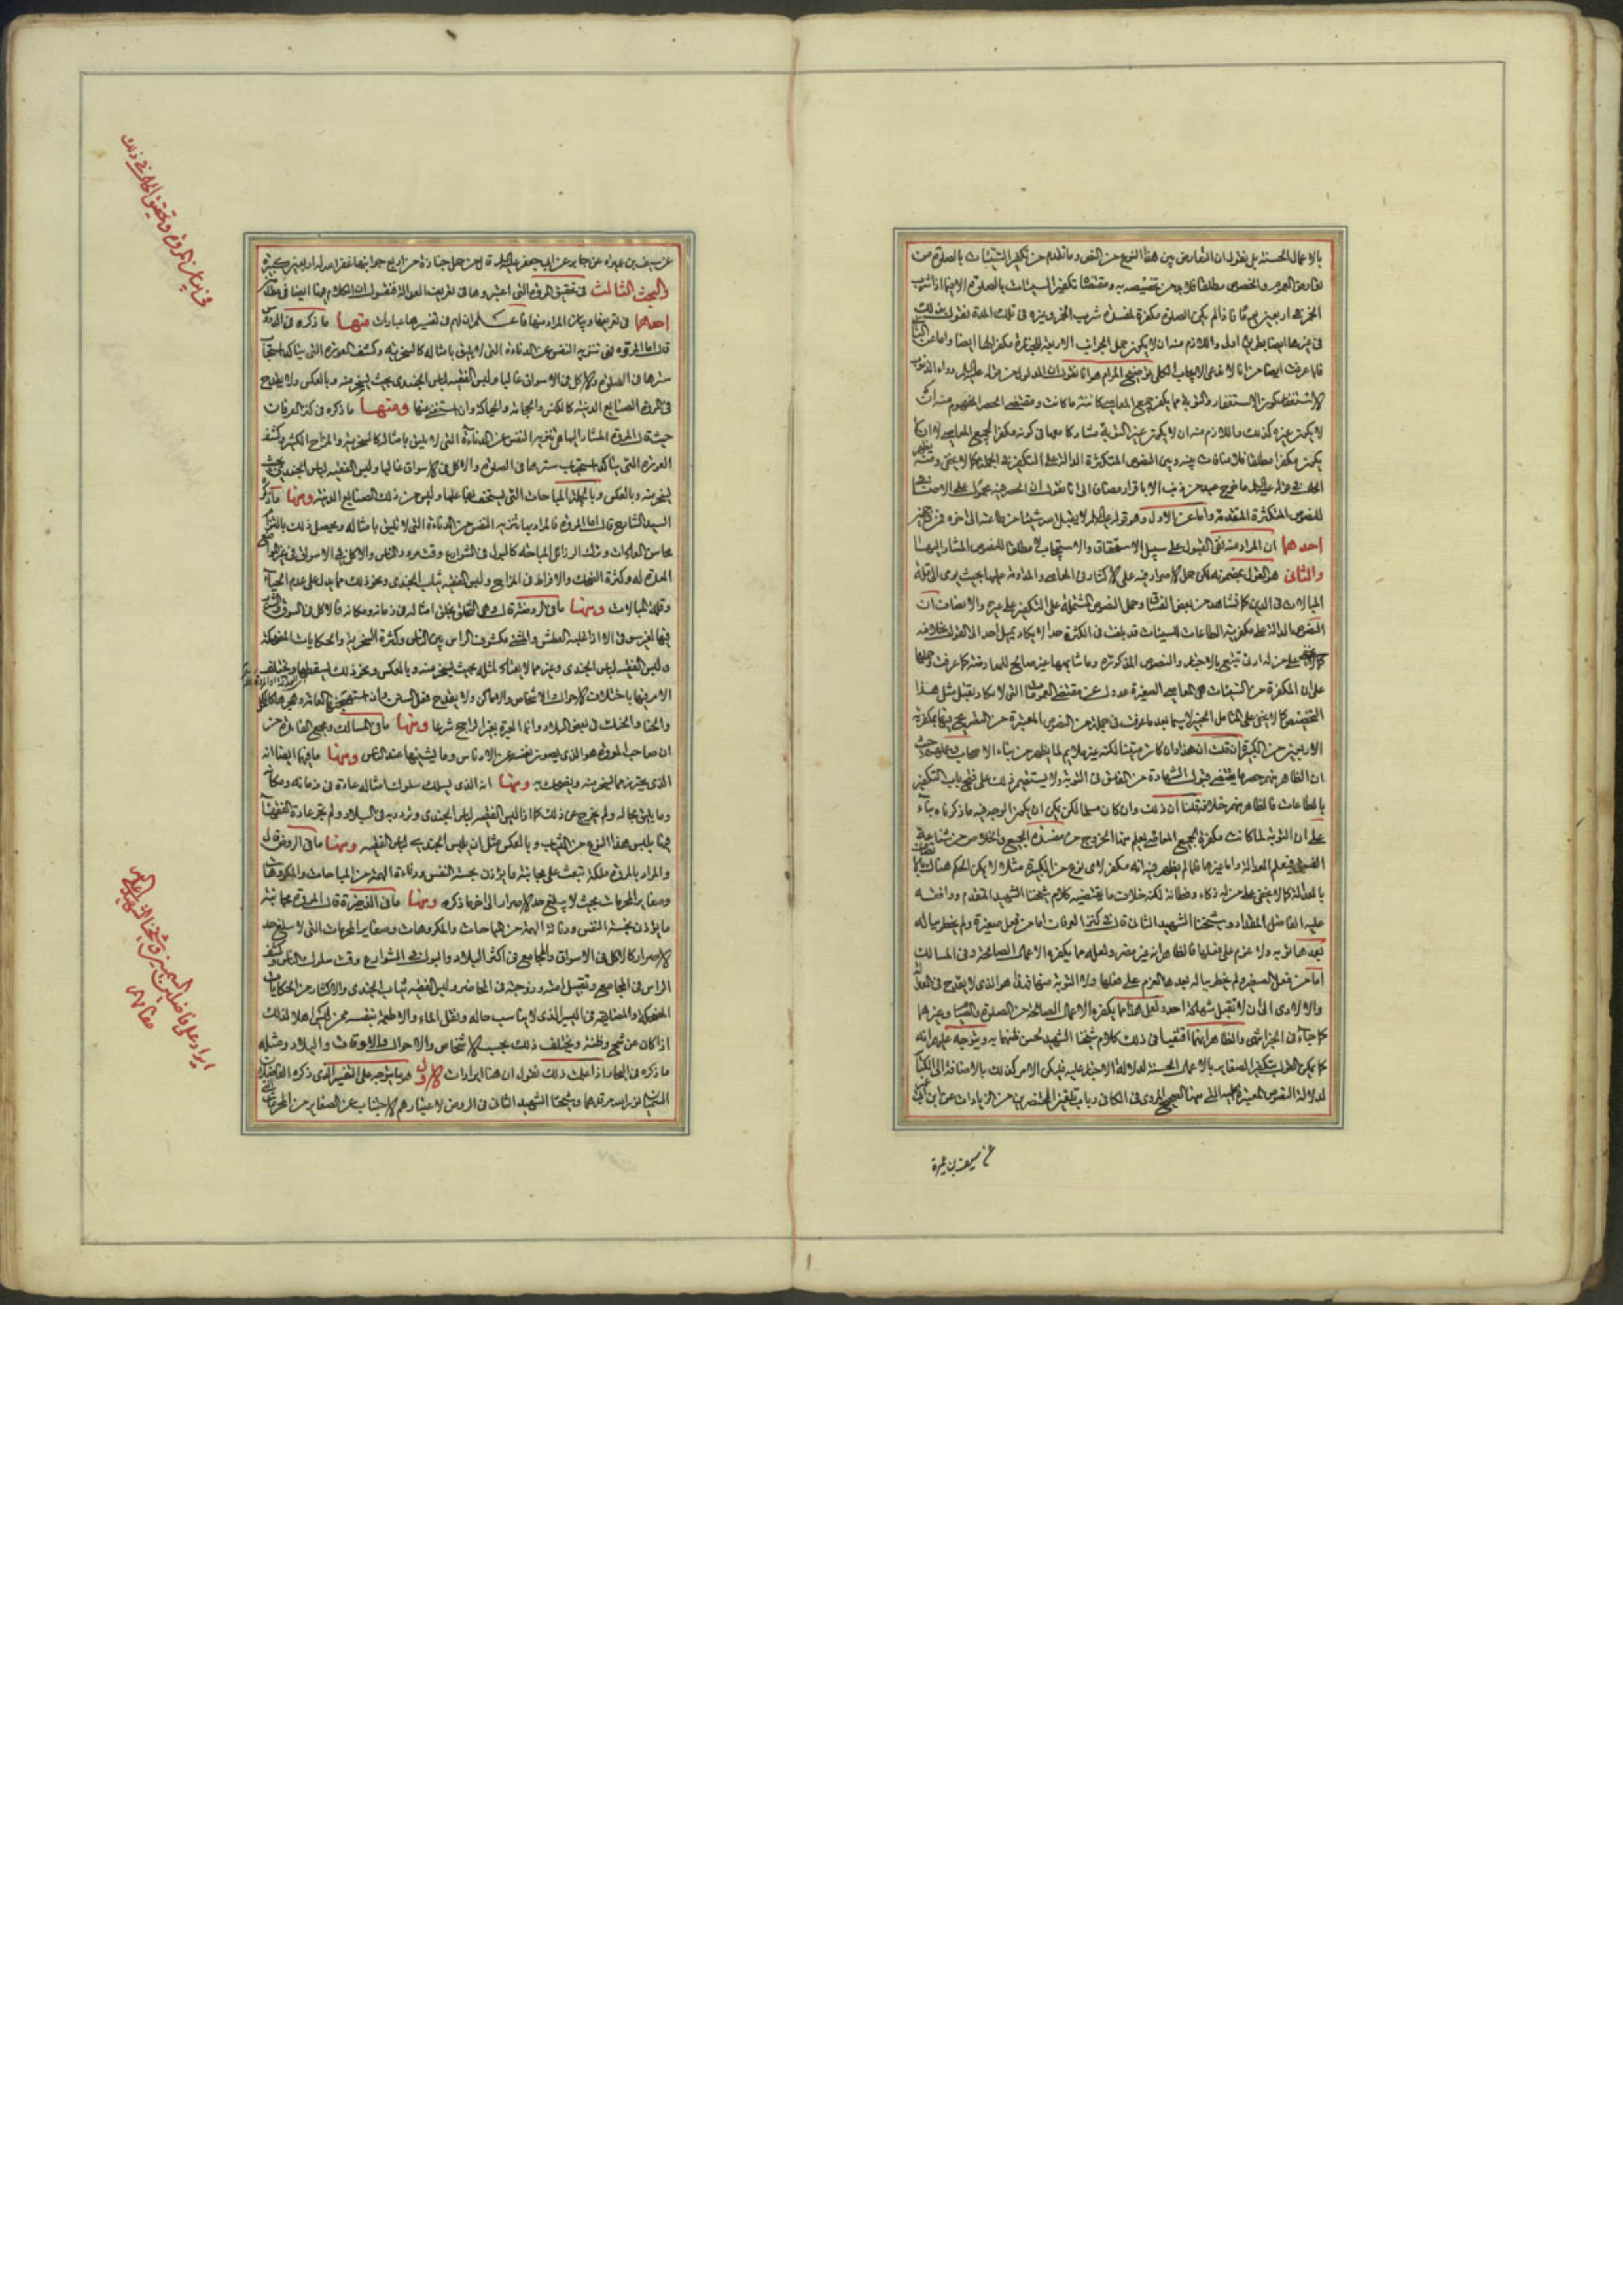 بالاعمال الحسنة بل نقول ان التعارض بين هذا النوع من النص وما تقدم من تكفير السيئات بالصلوة من
تعارض العموم والخصوص مطلقا فلا بد من تخصيصه به ومقتضاه تكفير السيئات بالصلوة الا فيما اذا شرب
الخمر في اربعين يوما فاذا لم يكن الصلوة مكفرة لمفسدة شرب الخمر وغيره في تلك المدة نقول بذلك
في غيرها ايضا بطريق اولى واللازم منه ان لا يكون حمل الجوانب الاربعة للجنازة مكفرا لها ايضا واما عن
فلما عرفت ايضا من انا لا ندعي الايجاب الكلي
الاستغفار كون الاستغفار والتوبة مما يكفر جميع المعاصي كائنة ما كانت ومقتضى الحصر المفهوم منه ان
لا يكون غيره كذلك واللازم منه ان لا يكون غير التوبة مشاركا معها في كونه مكفرا لجميع المعاصي لا ان
يكون مكفرا مطلقا فلا منافات بينه وبين النصوص المتكثرة الدالة على التكفير في الجملة كما لا يخفى ومنه
للنصوص المتكثرة المتقدمة واما عن الاول وهو قوله
احدهما ان المراد منه نفي القبول على سبيل الاستحقاق والاستيجاب لا مطلقا للنصوص المشار اليها
والثاني هو القول بمضمونه لكن حمل الاصرار فيه على الاكثار في المعاصي والمداومة عليها بحيث يؤدي الى قلة
المبالات في الدين كما نشاهد من بعض الفساق وحمل النصوص المشتملة على التكفير على غيره والانصاف ان
النصوص الدالة على مكفرية الطاعات للسيئات قد بلغت في الكثرة حدا لا يكاد يميل احد الى القول بخلافه
على من له ادنى تتبع بالاخبار والنصوص المذكورة وما شابهها غير صالح للمعارضة كما عرفت وحملها
على ان المكفرة من السيئات هي المعاصي الصغيرة عدول عن مقتضى العمومات التي لا يكاد يقبل مثل هذا
التخصيص كما لا يخفى على المتأمل الخبير لا سيما بعد ما عرفت في جملة من النصوص المعتبرة من التصريح فيها بمكفرية
الاربعين من الكبيرة ان قلت ان هذا وان كان متينا لكنه غير ملايم لما يظهر من بناء الاصحاب عليه حيث
ان الظاهر منهم حصر ما يقتضي قبول الشهادة من الفاسق في التوبة ولا يستقيم ذلك على فتح باب التكفير
بالطاعات فالظاهر منهم خلافه قلنا ان ذلك وان كان مسلما لكن يمكن ان يكون الوجه فيه ما ذكرناه بناء
على ان التوبة لما كانت مكفرة لجميع المعاصي يعلم منها الخروج من مفسدة الجميع والخلاص من شناعة
بالعدالة كما لا يخفى على من له ذكاء وفطانة لكنه خلاف ما يقتضيه كلام شيخنا الشهيد المتقدم ووافقه
عليه الفاضل المقداد وشيخنا الشهيد الثاني قال في كنز العرفان اما من فعل صغيرة ولم يخطر بباله
بعدها توبة ولا عزم على فعلها فالظاهر انه غير مصر ولعله مما يكفره الاعمال الصالحة وفي المسالك
اما من فعل الصغيرة ولم يخطر بباله بعدها العزم على فعلها ولا التوبة منها فهذا هو الذي لا يقدح في العدالة
والا لادى الى ان لا تقبل شهادة احد ولعل هذا مما يكفره الاعمال الصالحة من الصلوة والصيام وغيرهما
كما جاء في الخبر انتهى والظاهر انهما اقتفيا في ذلك كلام شيخنا الشهيد لحسن ظنهما به ويتوجه عليهم انه
كما يمكن القول بتكفير الصغاير بالاعمال الحسنة لدلالة الاخبار عليه فليكن الامر كذلك بالاضافة الى الكبائر
لدلالة النصوص المعتبرة عليه التي منها الصحيح المروي في الكافي وباب تلقين المحتضرين من الزيادات عن ابن ابي
عن سيف بن عميرة
عن سيف بن عميرة عن جابر عن ابي جعفر عليه السلام قال من حمل جنازة من اربع جوانبها غفر الله له اربعين كبيرة
والبحث الثالث في تحقيق المروة التي اعتبروها في تعريف العدالة فنقول ان الكلام هنا ايضا في
احدهما في تعريفها وبيان المراد منها فاعلم ان لهم في تفسيرها عبارات منها ما ذكره في الدروس
قال اما المروة فهي تنزيه النفس عن الدناءة التي لا يليق بامثاله كالسخرية وكشف العورة التي يتاكد استحباب
سترها في الصلوة والاكل في الاسواق غالبا ولبس الفقيه لباس الجندي بحيث يسخر منه وبالعكس ولا يقدح
في المروة الصنايع الدنية كالكنس والحجامة والحياكة وان استغنى عنها ومنها ما ذكره في كنز العرفان
حيث قال المروة المشار اليها هي تنزيه النفس عن الدناءة التي لا يليق بامثاله كالسخرية والمزاح الكثير وكشف
العورة التي يتاكد استحباب سترها في الصلوة والاكل في الاسواق غالبا ولبس الفقيه لباس الجندي بحيث
يسخر منه وبالعكس وبالجملة المباحات التي يستخف بفاعلها وليس من ذلك الصنايع الدنية ومنها ما ذكره
السيد الشارح قال اما المروة فالمراد بها تنزيه النفس من الدناءة التي لا تليق بامثاله ويحصل ذلك بالتزام
محاسن العادات وترك الرذائل المباحة كالبول في الشوارع وقت مرور الناس والاكل في الاسواق في غير المواضع
المعدة له وكثرة الضحك والافراط في المزاح ولبس الفقيه ثياب الجندي ونحو ذلك مما يدل على عدم الحياء
وقلة المبالات ومنها ما في الروضة قال وهي التخلق بخلق امثاله في زمانه ومكانه فالاكل في السوق والشرب
فيها لغير سوقي الا اذا غلبه العطش والمشي مكشوف الراس بين الناس وكثرة السخرية والحكايات المضحكة
ولبس الفقيه لباس الجندي وغيره مما لا يعتاد لمثله بحيث يسخر منه وبالعكس ونحو ذلك يسقطها ويختلف
الامر فيها باختلاف الاحوال والاشخاص والاماكن ولا يقدح فعل السنن وان استهجنها العامة وهجرها الناس كالكحل
والحناء والحنك في بعض البلاد وانما العبرة بغير الراجح شرعا ومنها ما في المسالك ومجمع الفائدة من
ان صاحب المروة هو الذي يصون نفسه عن الادناس وما يشينها عند الناس ومنها ما فيها ايضا انه
الذي يحترز عما يسخر منه ويضحك به ومنها انه الذي يسلك سلوك امثاله عادة في زمانه ومكانه
وما يليق بحاله ولم يخرج عن ذلك كما اذا لبس الفقيه لباس الجندي وتردد به في البلاد ولم تجر عادة الفقهاء
هنا بلبس هذا النوع من الثياب وبالعكس مثل ان يلبس الجندي لباس الفقيه ومنها ما في الروض قال
والمراد بالمروة ملكة تبعث على مجانبة ما يؤذن بخسة النفس ودناءة الهمة من المباحات والمكروهات
وصغاير المحرمات بحيث لا يبلغ حد الاصرار الى اخر ما ذكره ومنها ما في الذخيرة قال المروة مجانبة
ما يؤذن بخسة النفس ودنائة الهمة من المباحات والمكروهات وصغاير المحرمات التي لا يبلغ حد
الاصرار كالاكل في الاسواق والمجامع في اكثر البلاد والبول في الشوارع وقت سلوك الناس وكشف
الراس في المجامع وتقبيل امته وزوجته في المحاضر ولبس الفقيه ثياب الجندي والاكثار من الحكايات
المضحكة والمضايقة في اليسير الذي لا يناسب حاله ونقل الماء والاطعمة بنفسه ممن ليس اهلا لذلك
اذا كان عن شح وظنة ويختلف ذلك بحسب الاشخاص والاحوال والاوقات والبلاد ومثله
ما ذكره في البحار اذا علمت ذلك نقول ان هنا ايرادات الاول هو ما يتوجه على التفسير الذي ذكره الفاضلان
السميان نور الله مرقدهما وشيخنا الشهيد الثاني في الروض لاعتبارهم الاجتناب عن الصغاير من المحرمات
في بيان المروة وتحقيق الحال في ذلك
ايراد على فاضلين السميين وشيخنا الشهيد الثاني